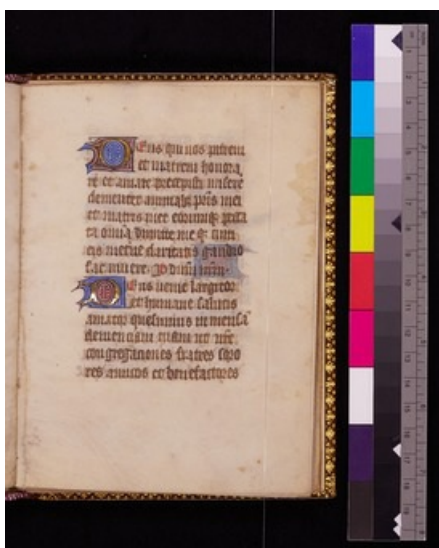 Deus qui nos patrem
et matrem honora
re et amare precepisti misere
clementer animabus pris mei
et matris mee eorumq; pecca
ta omnia dimitte me q; cum
eis eterne claritatis gaudio
fac vivere. P
Deus venie largitor
et humane salutis
amator quesumus
clementiam tuam ut nre
congregationis fratres soro
res amicos et benefactores